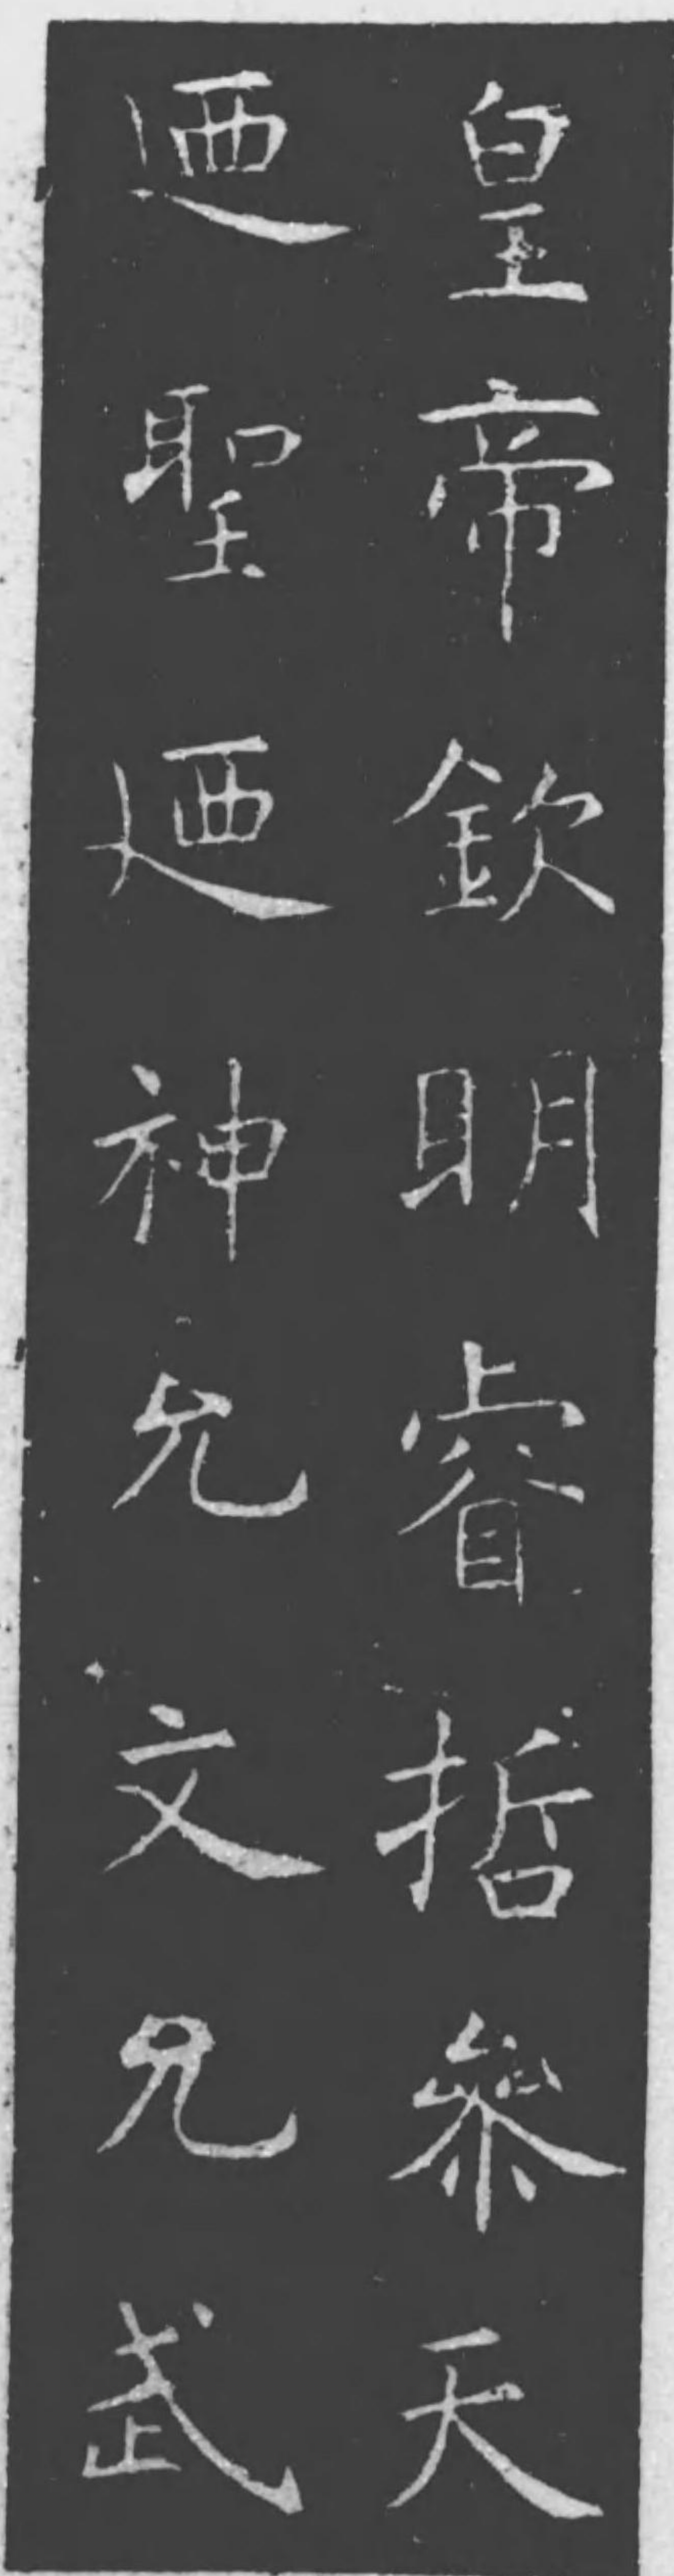 皇帝欽明睿哲參天
迺聖迺神允文允武